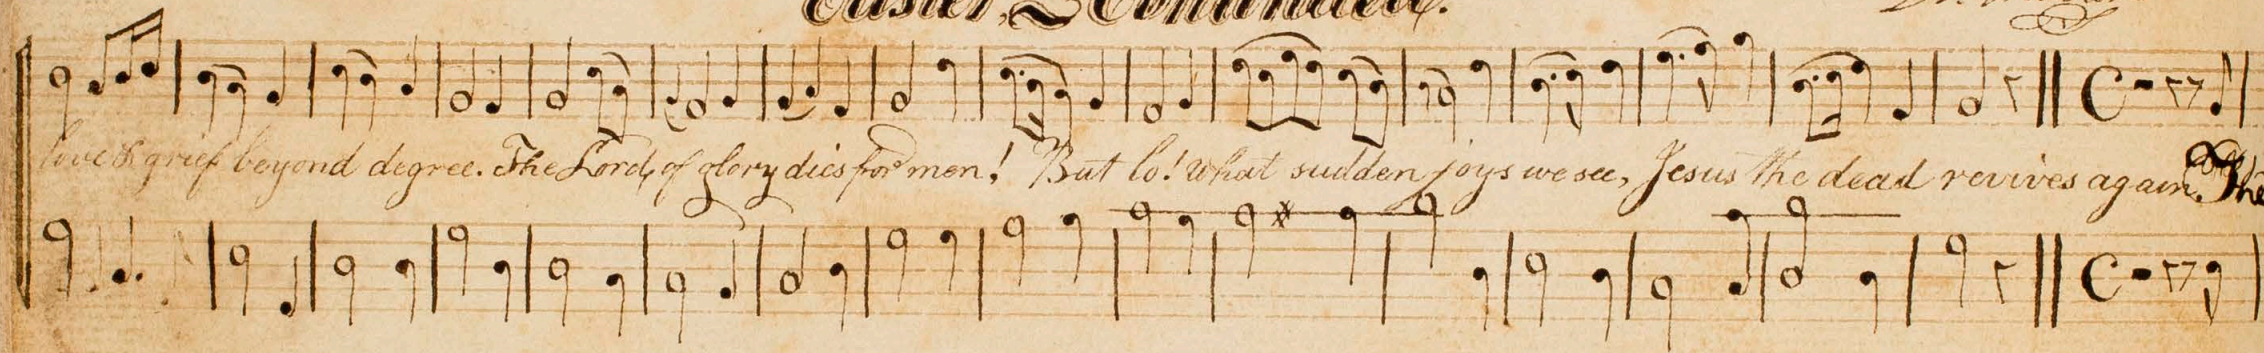 Easter, Continued.
love & grief beyond degree. The Lord, of glory dies for men! But lo! what sudden joys we see, Jesus the dead revives again. The